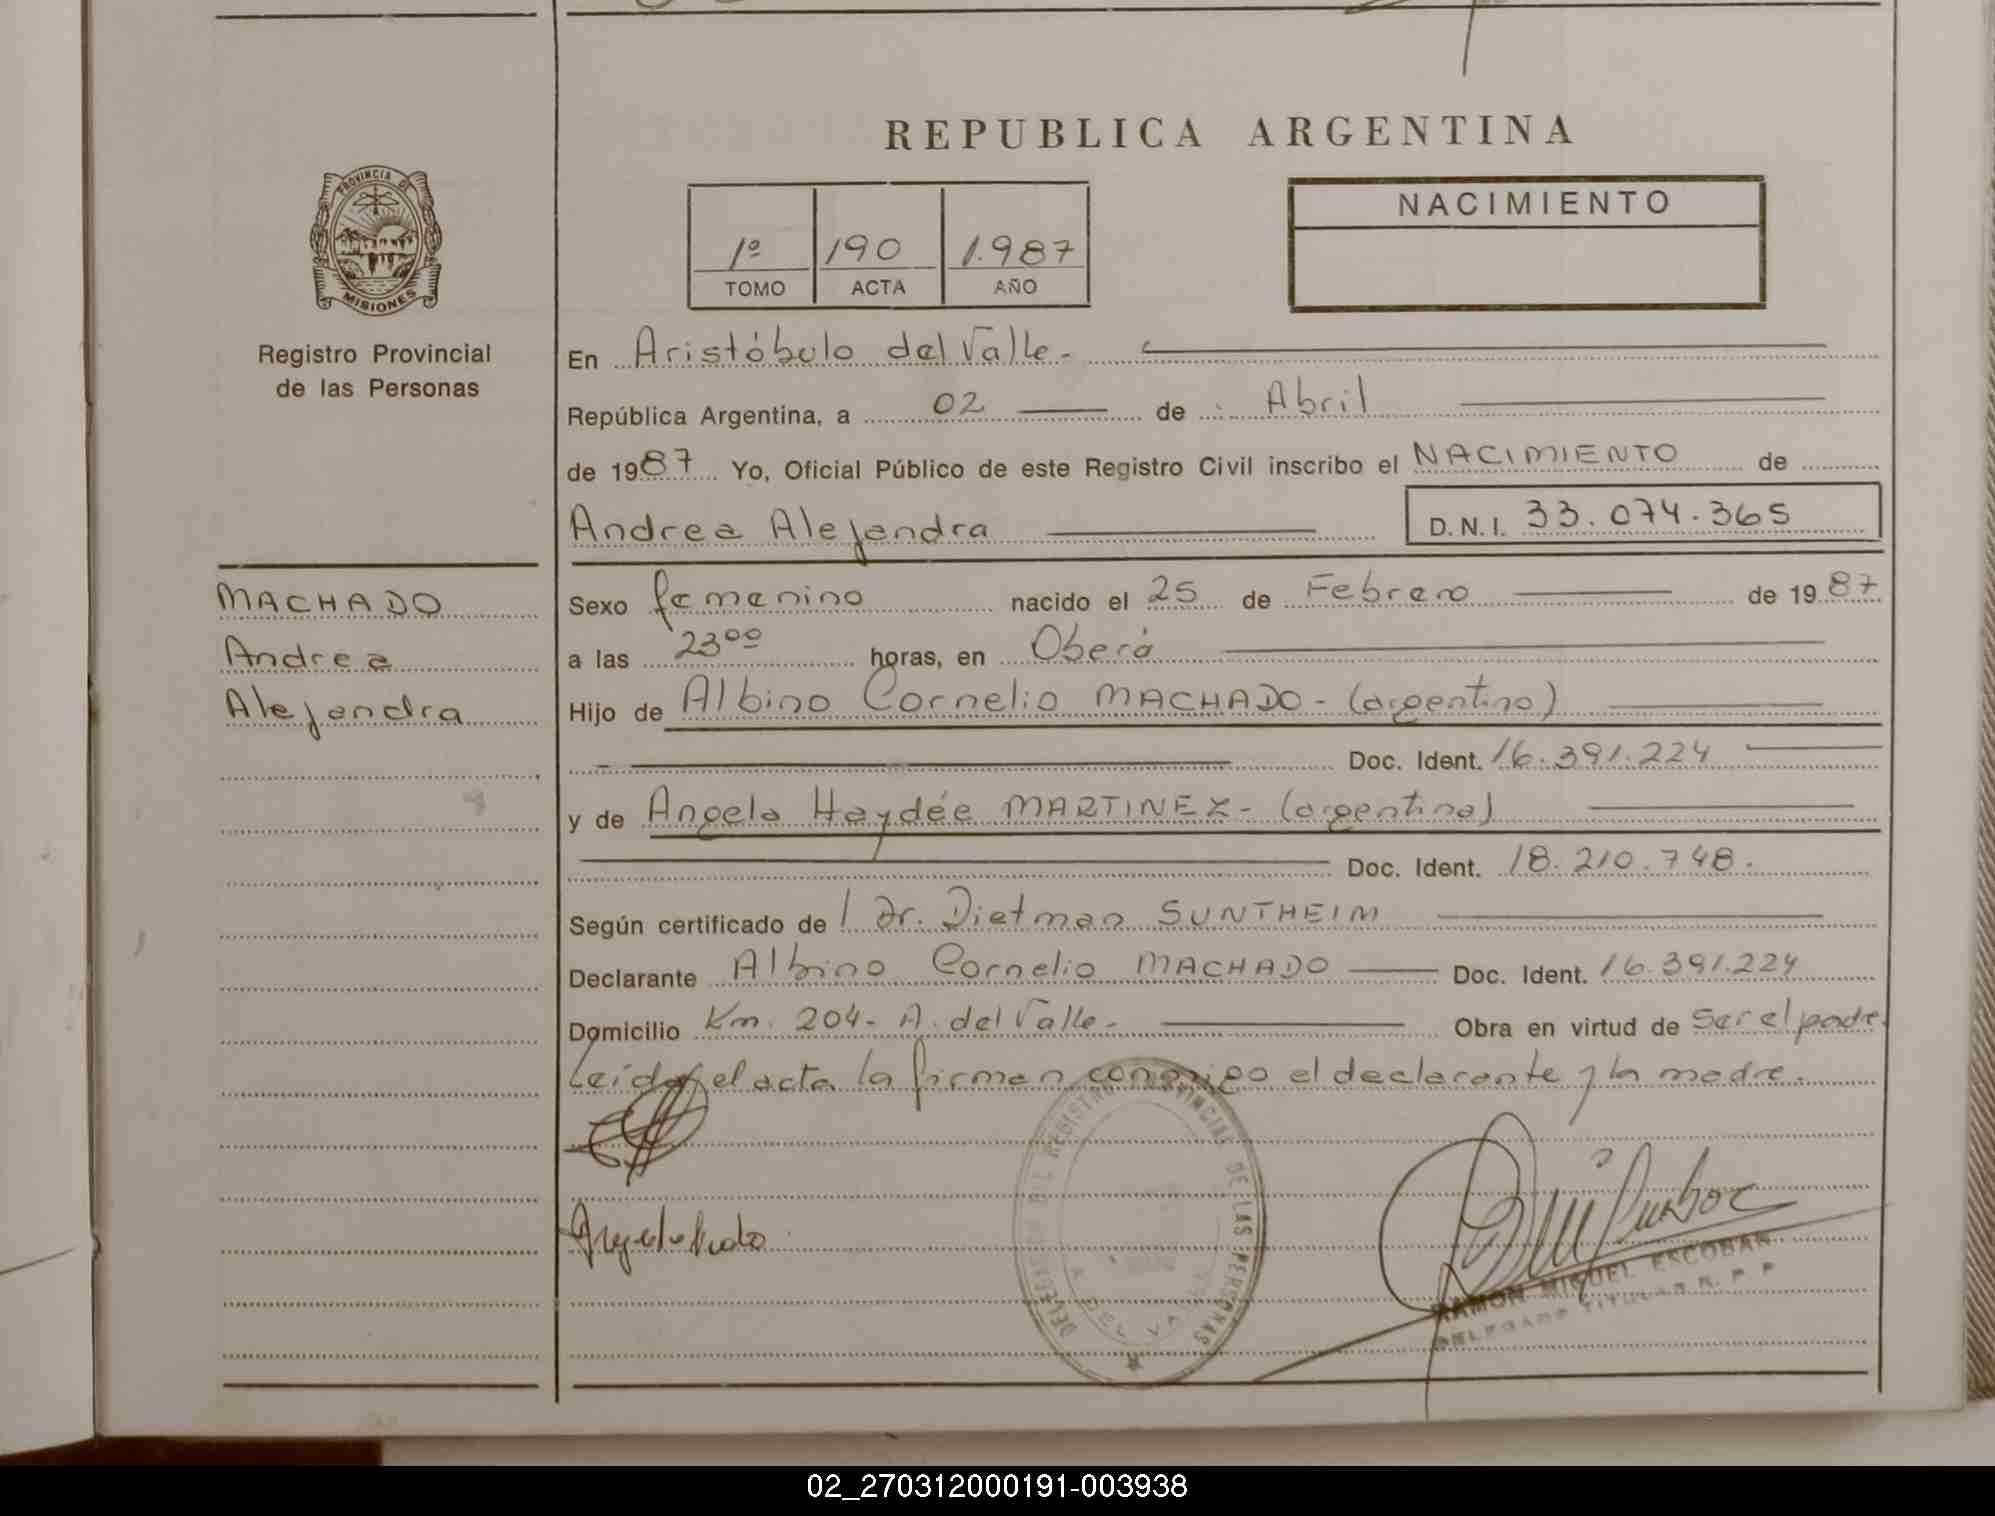 REPUBLICA ARGENTINA
PROVINCIA DE
MISIONES
Registro Provincial
de las Personas
1º 190 1.987
TOMO ACTA AÑO
NACIMIENTO
En Aristóbulo del Valle.-
República Argentina, a 02 de Abril
de 1987 Yo, Oficial Público de este Registro Civil inscribo el NACIMIENTO de
Andrea Alejandra D.N.I. 33.074.365
MACHADO
Andrea
Alejandra
Sexo femenino nacido el 25 de Febrero de 1987
a las 23⁰⁰ horas, en Oberá
Hijo de Albino Cornelio MACHADO - (argentino)
Doc. Ident. 16.391.224
y de Angela Haydée MARTINEZ - (argentina)
Doc. Ident. 18.210.748.
Según certificado de / Dr. Dietman SUNTHEIM
Declarante Albino Cornelio MACHADO Doc. Ident. 16.391.224
Domicilio Km. 204- A. del Valle.- Obra en virtud de Ser el padre.
Leída el acta la firman conmigo el declarante y la madre.
DELEGACION DEL REGISTRO PROVINCIAL DE LAS PERSONAS
A. DEL VALLE
RAMON MIGUEL ESCOBAR
DELEGADO TITULAR R. P. P.
02_270312000191-003938